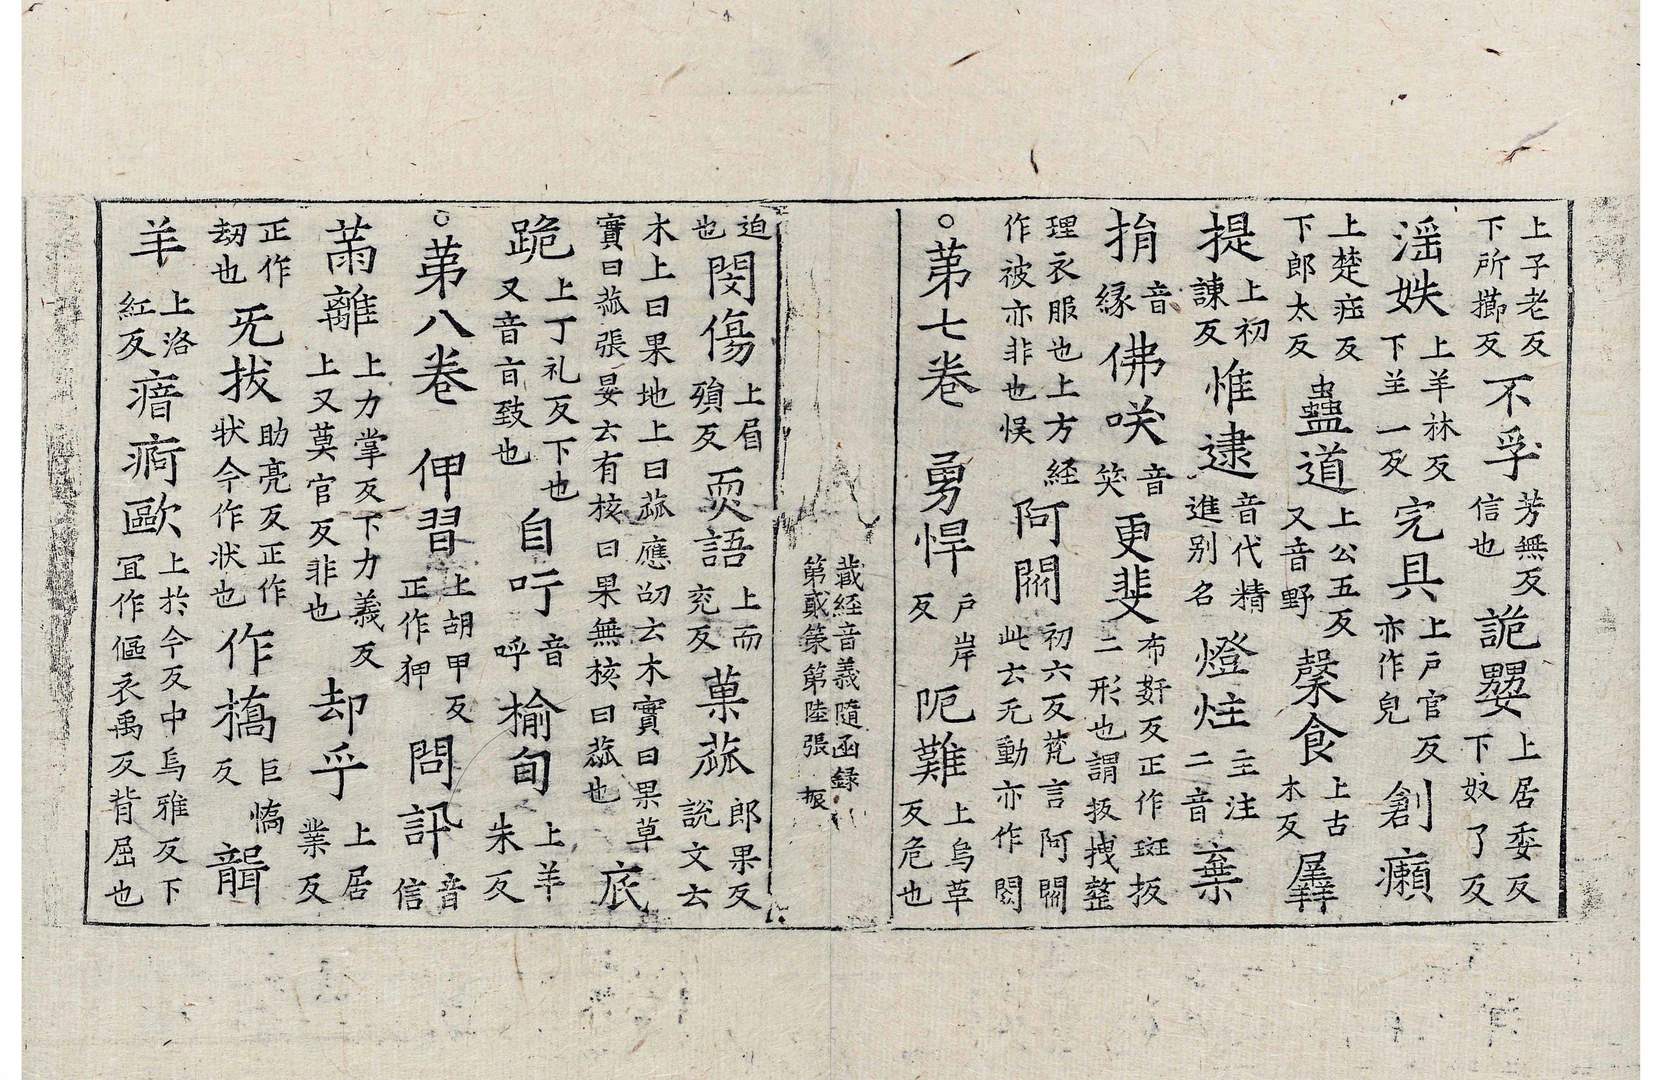 上子老反下所擲反不孚芳無反信也詭嬰上居委反下奴了反
淫妷上羊林反下羊一反完具上戶官反亦作皃創癩
上楚莊反下郎太反蠱道上公五反又音野馨食上古木反羼
提上初諫反惟逮音代精進別名燈炷主注二音棄
捐音緣佛咲音笑更斐布姧反正作斑扳二形也謂扳拽整
理衣服也上方経作被亦非也悮阿閦初六反梵言阿閦此云无動亦作閦
○苐七卷 勇悍戶岸反阨難上烏革反危也
藏経音義隨函録
第貳筞第陸張 振
迫也閔傷上眉殞反耎語上而兖反菓蓏郎果反說文云
木上曰果地上曰蓏應劭云木實曰果草
實曰蓏張晏云有核曰果無核曰蓏也底
跪上丁礼反下也又音盲致也自吁音呼榆旬上羊朱反
○苐八卷 伊習上胡甲反正作狎問訊音信
萳離上力掌反下力義反上又莫官反非也却乎上居業反
正作刼也旡拔助亮反正作状今作状也作橋巨憍反聾
羊上洛紅反瘖痾歐上於今反中烏雅反下冝作傴衣禹反背屈也